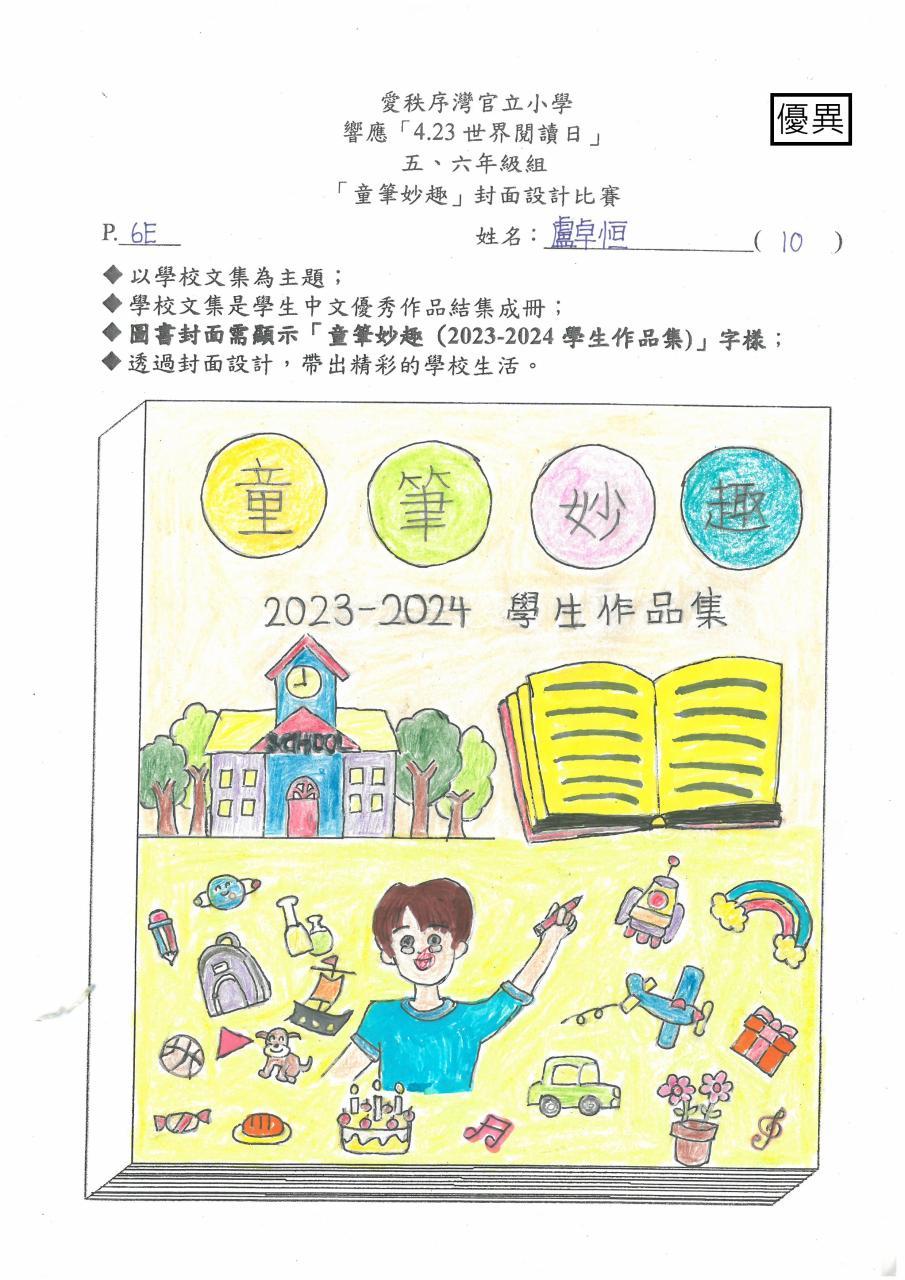 愛秩序灣官立小學
優異
響應「4.23 世界閱讀日」
五、六年級組
「童筆妙趣」封面設計比賽
P. 6E 姓名：盧卓恒 ( 10 )
◆ 以學校文集為主題；
◆ 學校文集是學生中文優秀作品結集成冊；
◆ 圖書封面需顯示「童筆妙趣（2023-2024 學生作品集)」字樣；
◆ 透過封面設計，帶出精彩的學校生活。
童 筆 妙 趣
2023-2024 學生作品集
SCHOOL